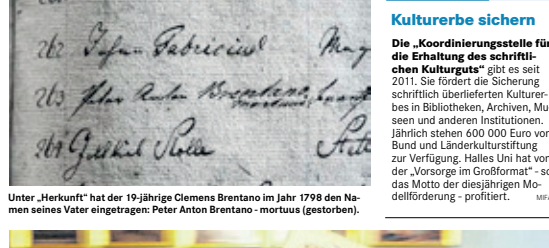 262 Johan Fabricius
263 Peter Anton Brentano,
264
Unter „Herkunft“ hat der 19-jährige Clemens Brentano im Jahr 1798 den Na-
men seines Vater eingetragen: Peter Anton Brentano - mortuus (gestorben).
Kulturerbe sichern
Die „Koordinierungsstelle für
die Erhaltung des schriftli-
chen Kulturguts“ gibt es seit
2011. Sie fördert die Sicherung
schriftlich überlieferten Kulturer-
bes in Bibliotheken, Archiven, Mu-
seen und anderen Institutionen.
Jährlich stehen 600 000 Euro von
Bund und Länderkulturstiftung
zur Verfügung. Halles Uni hat von
der „Vorsorge im Großformat“ - so
das Motto der diesjährigen Mo-
dellförderung - profitiert.